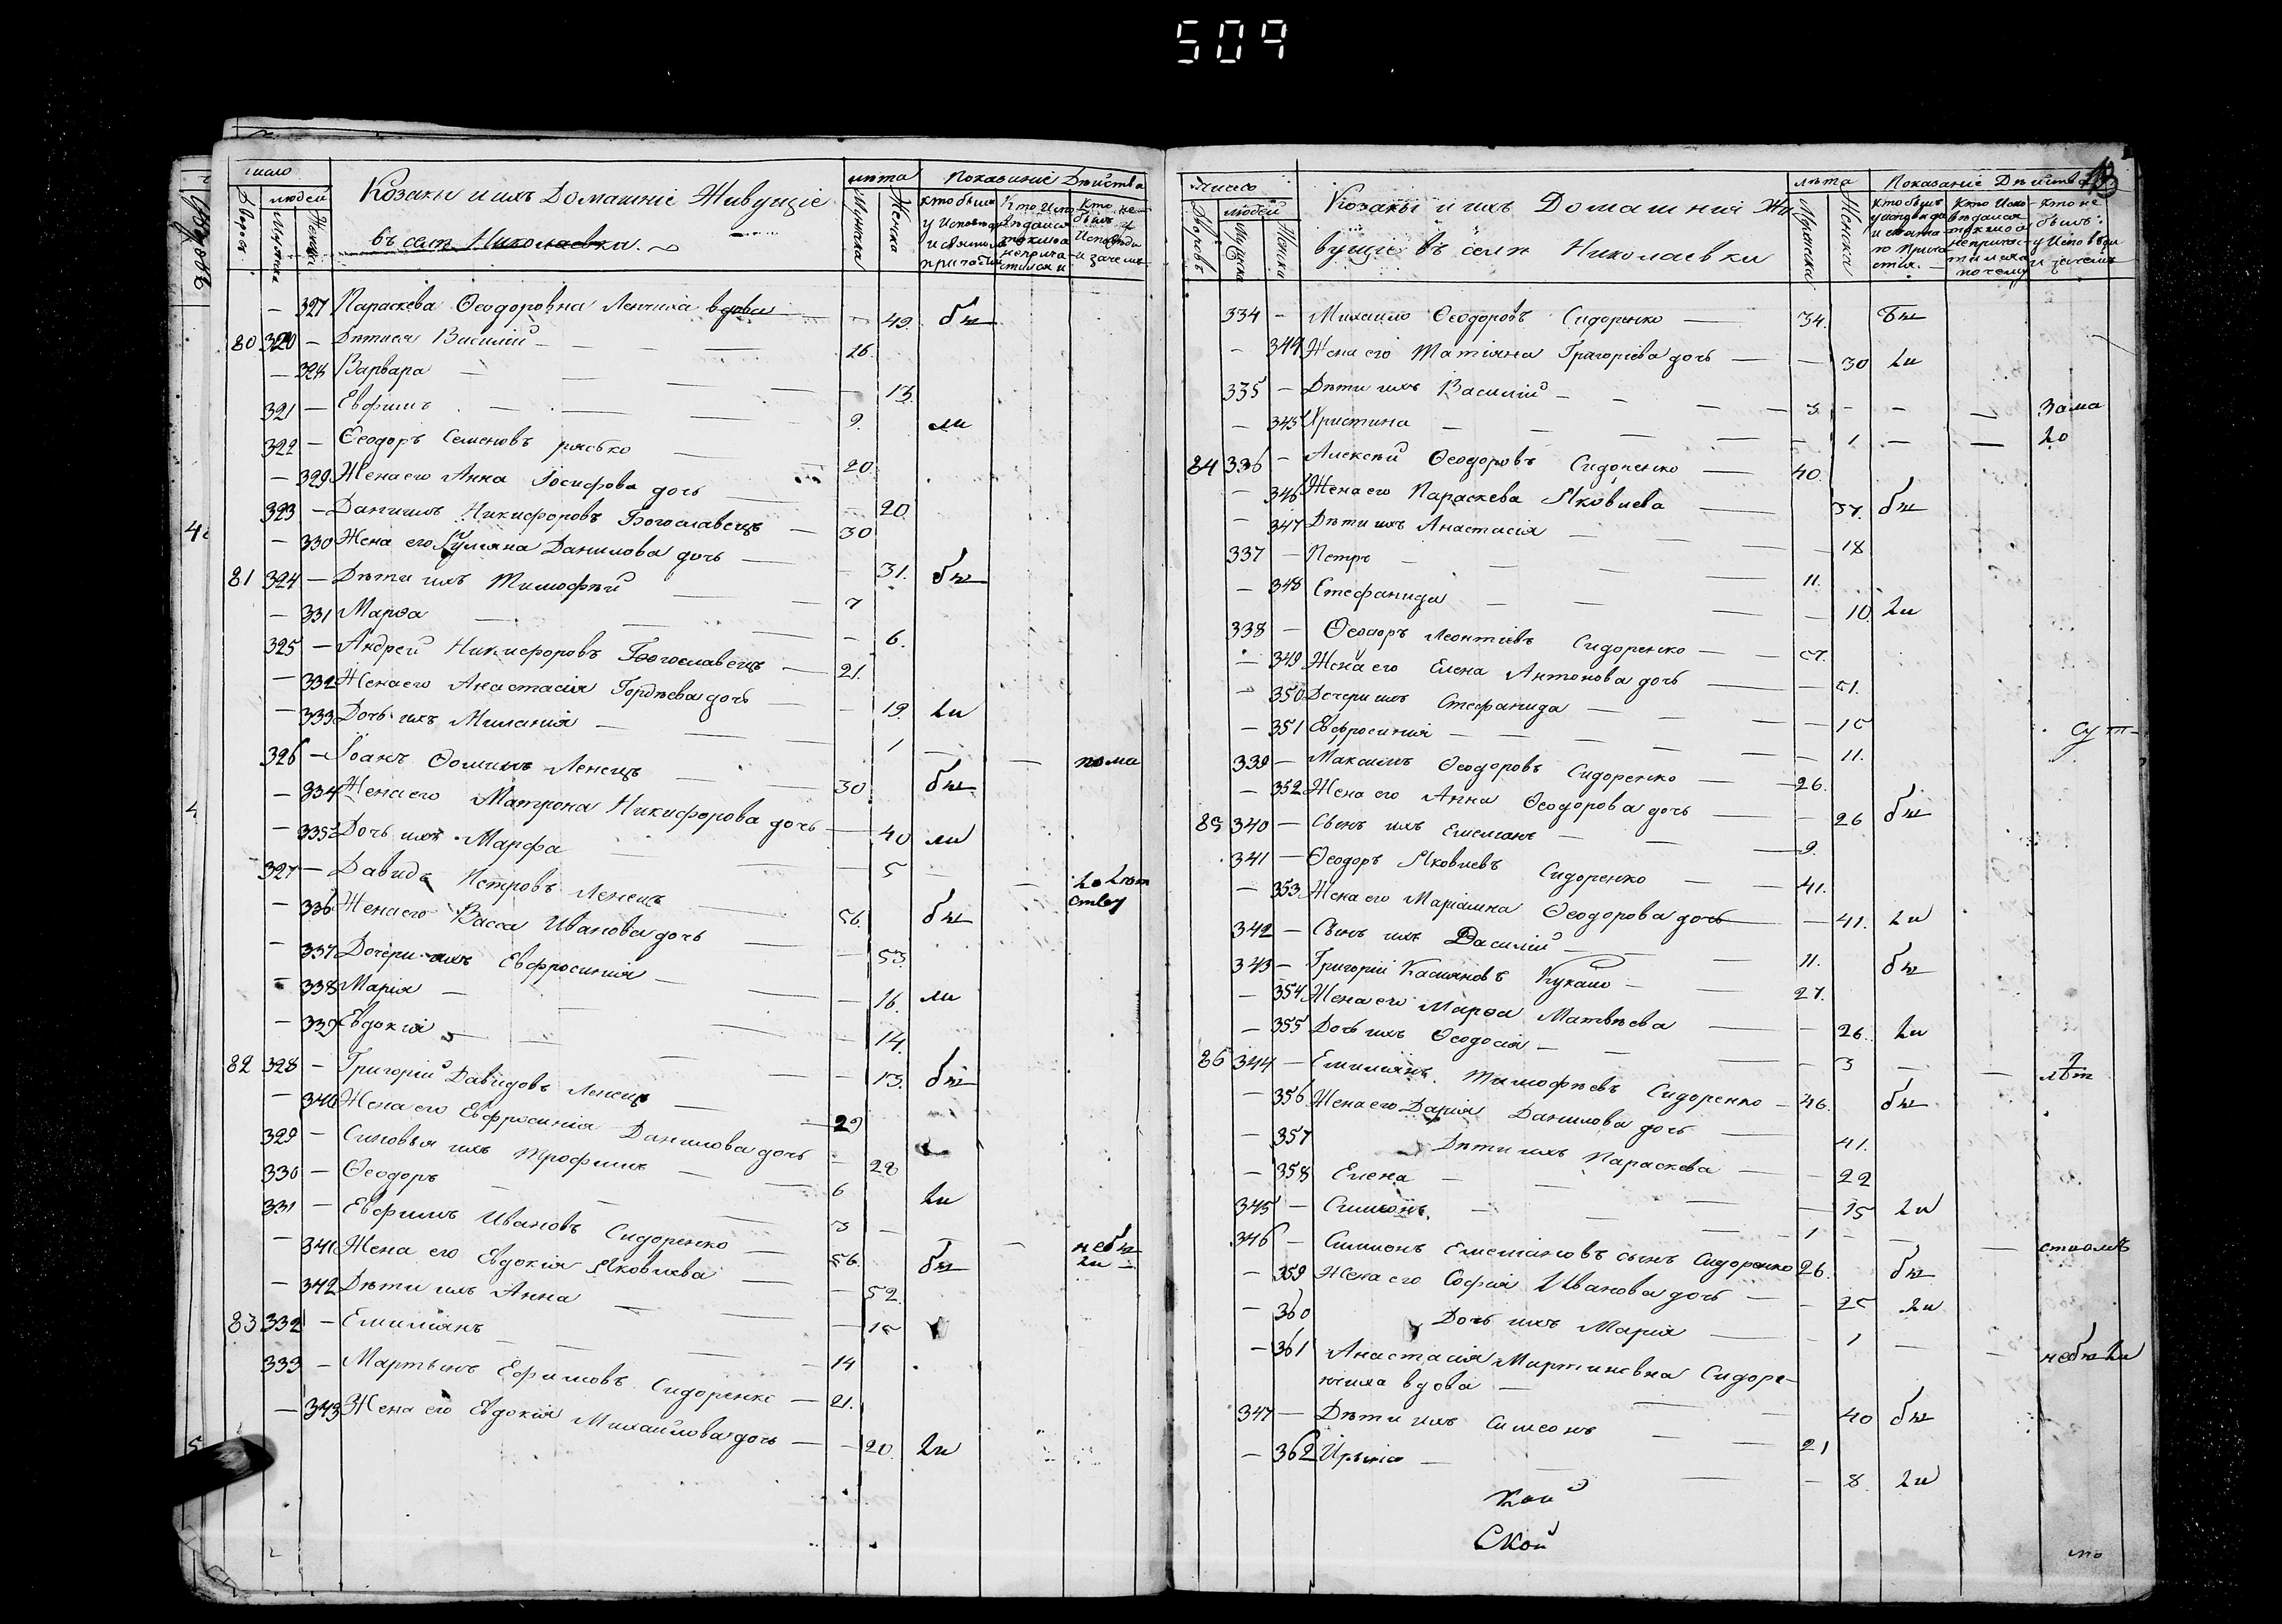 509
число
Козаки и ихъ Домашніе Живущіе
лѣта
Показаніе Дѣйства
Дворовъ
людей
въ селѣ Николаевки.
Мужска
Женска
кто былъ у Исповѣди
— 327 Параскева Ѳеодоровна вдова — 49. бы
80 320 — Дѣти ея Василий — 16.
— 328 Варвара — 13.
321 — Евфимъ — 9. ли
322 — Ѳеодоръ Семеновъ рябко — 20.
— 329 Жена его Анна Іосифова дочь — 20.
323 — Даниилъ Никифоровъ Богославецъ — 30
— 330 Жена его Данилова дочь — 31. бы
81 324 — Дѣти ихъ Тимофѣй — 7
— 331 Марѳа — 6.
325 — Андрей Никифоровъ Богославецъ — 21.
— 332 Жена его Анастасія Гордѣева дочь — 19. ли
— 333 Дочь ихъ Миланія — 1 — — пома
326 — Іоанъ Ѳоминъ Ленецъ — 30 бы
— 334 Жена его Матрона Никифорова дочь — 40 ли
— 335 Дочь ихъ Марфа — 5 — —
327 — Давидъ Петровъ Ленецъ — 56. бы
— 336 Жена его Васса Иванова дочь — 53.
— 337 Дочери ихъ Евфросинія — 16. ли
— 338 Марія — 14.
— 339 Евдокія — 13. бы
82 328 — Григорій Давидовъ Ленецъ — 29
— 340 Жена его Евфросинія Данилова дочь — 28
329 — Синовья ихъ Трофимъ — 6 ли
330 — Ѳеодоръ — 3 — — не бы ли
331 — Евфимъ Ивановъ Сидоренко — 56. бы
— 341 Жена его Евдокія Яковлева — 52.
— 342 Дѣти ихъ Анна — 15
83 332 — Емиліянъ — 14
333 — Мартынъ Ефимовъ Сидоренко — 21.
— 343 Жена его Евдокія Михаилова дочь — 20. ли
число
Козаки и ихъ Домашнія Жи
лѣта
Показаніе Дѣйства
Дворовъ
людей
вущіе въ селѣ Николаевки
Мужска
Женска
334 — Михаило Ѳеодоровъ Сидоренко — 34. бы
— 344 Жена его Татіяна Григоріева дочь — 30 ли
335 — Дѣти ихъ Василій — 3. — — — за ма
— 345 Христина — 1 — — ло
84 336 — Алексѣй Ѳеодоровъ Сидоренко — 40.
— 346 Жена его Параскева Яковлева — 37. бы
— 347 Дѣти ихъ Анастасія — 18
337 — Петръ — 11.
— 348 Стефанида — 10 ли
338 — Ѳеодоръ Леонтіевъ Сидоренко — 57.
— 349 Жена его Елена Антонова дочь — 51.
— 350 Дочери ихъ Стефанида — 15
— 351 Евфросинія — 11.
339 — Максимъ Ѳеодоровъ Сидоренко — 26.
— 352 Жена его Анна Ѳеодорова дочь — 26 бы
85 340 — Сынъ ихъ Емелианъ — 9.
341 — Ѳеодоръ Яковлевъ Сидоренко — 41.
— 353 Жена его Маріамна Ѳеодорова дочь — 41. ли
342 — Сынъ ихъ Василій — 11. бы
343 — Григорій Касияновъ Кукало — 27.
— 354 Жена его Марѳа Матвѣева — 26 ли
— 355 Дочь ихъ Ѳеодосія — 3 — — лѣт
86 344 — Емилиянъ Тимофѣевъ Сидоренко — 46. бы
— 356 Жена его Дарія Данилова дочь — 41.
— 357 Дѣти ихъ Параскева — 22
— 358 Елена — 15 ли
345 — Симеонъ — 1 — —
346 — Симионъ Емелиановъ сынъ Сидоренко 26. бы
— 359 Жена его Софія Иванова дочь — 25 ли
— 360 Дочь ихъ Марія — 1 — — не бы ли
— 361 Анастасія Мартиневна Сидоре-
нчиха вдова — 40 бы
347 — Дѣти ихъ Симеонъ — 21
— 362 Ирына — 8. ли
кой
Ской